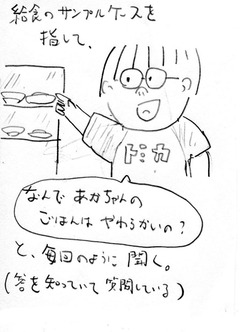 給食のサンプルケースを
指して、
トミカ
なんで あかちゃんの
ごはんは やわらかいの?
と、毎回のように 聞く。
(答を知っていて 質問している)